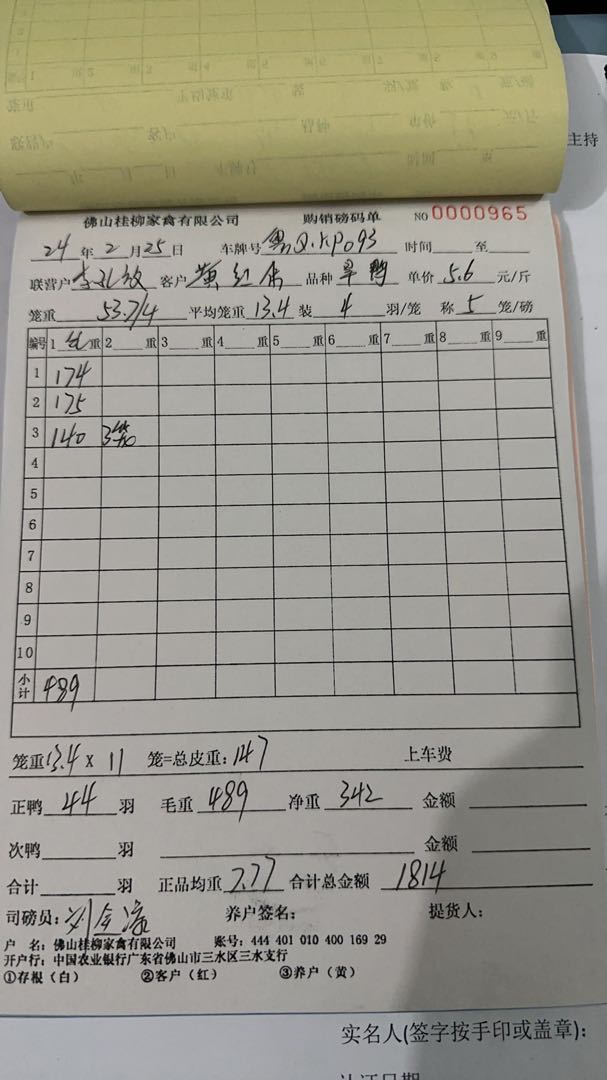 主持
佛山桂柳家禽有限公司 购销磅码单 NO 0000965
24年2月25日 车牌号 粤Q.KP093 时间 至
联营户 客户 黄红 品种 旱鸭 单价 5.6 元/斤
笼重 53.7/4 平均笼重 13.4 装 4 羽/笼 称 5 笼/磅
编号 1 重 2 重 3 重 4 重 5 重 6 重 7 重 8 重 9 重
1 174
2 175
3 140 3笼
4
5
6
7
8
9
10
小计 489
笼重 13.4 X 11 笼=总皮重: 147 上车费
正鸭 44 羽 毛重 489 净重 342 金额
次鸭 羽 金额
合计 羽 正品均重 7.77 合计总金额 1814
司磅员: 刘金 养户签名: 提货人:
户 名: 佛山桂柳家禽有限公司 账号: 444 401 010 400 169 29
开户行: 中国农业银行广东省佛山市三水区三水支行
①存根（白） ②客户（红） ③养户（黄）
实名人(签字按手印或盖章):